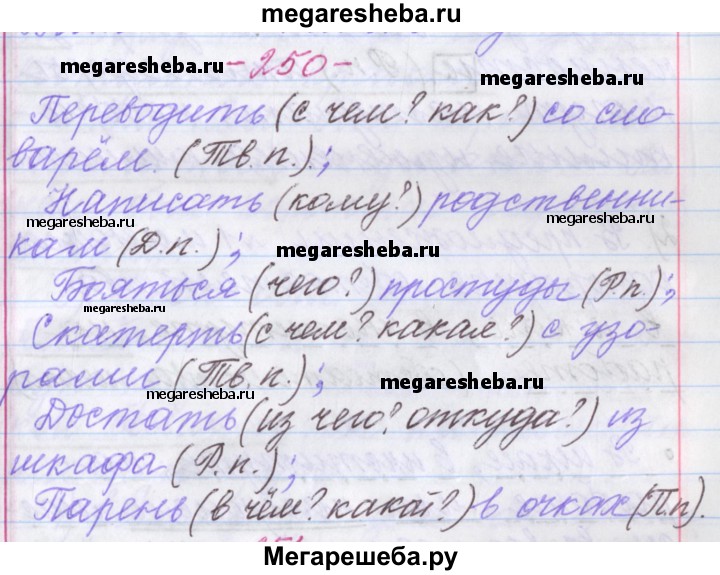 megaresheba.ru
megaresheba.ru - 250 - megaresheba.ru
Переводить (с чем? как?) со сло-
варём. (Тв.п.);
Написать (кому?) родственни-
megaresheba.ru megaresheba.ru
кам (Д.п.); megaresheba.ru
Бояться (чего?) простуды (Р.п);
megaresheba.ru
Скатерть (с чем? какая?) с узо-
рами (Тв.п.); megaresheba.ru
Достать (из чего? откуда?) из
шкафа (Р.п.);
Парень (в чём? какой?) в очках (П.п).
Мегарешеба.ру